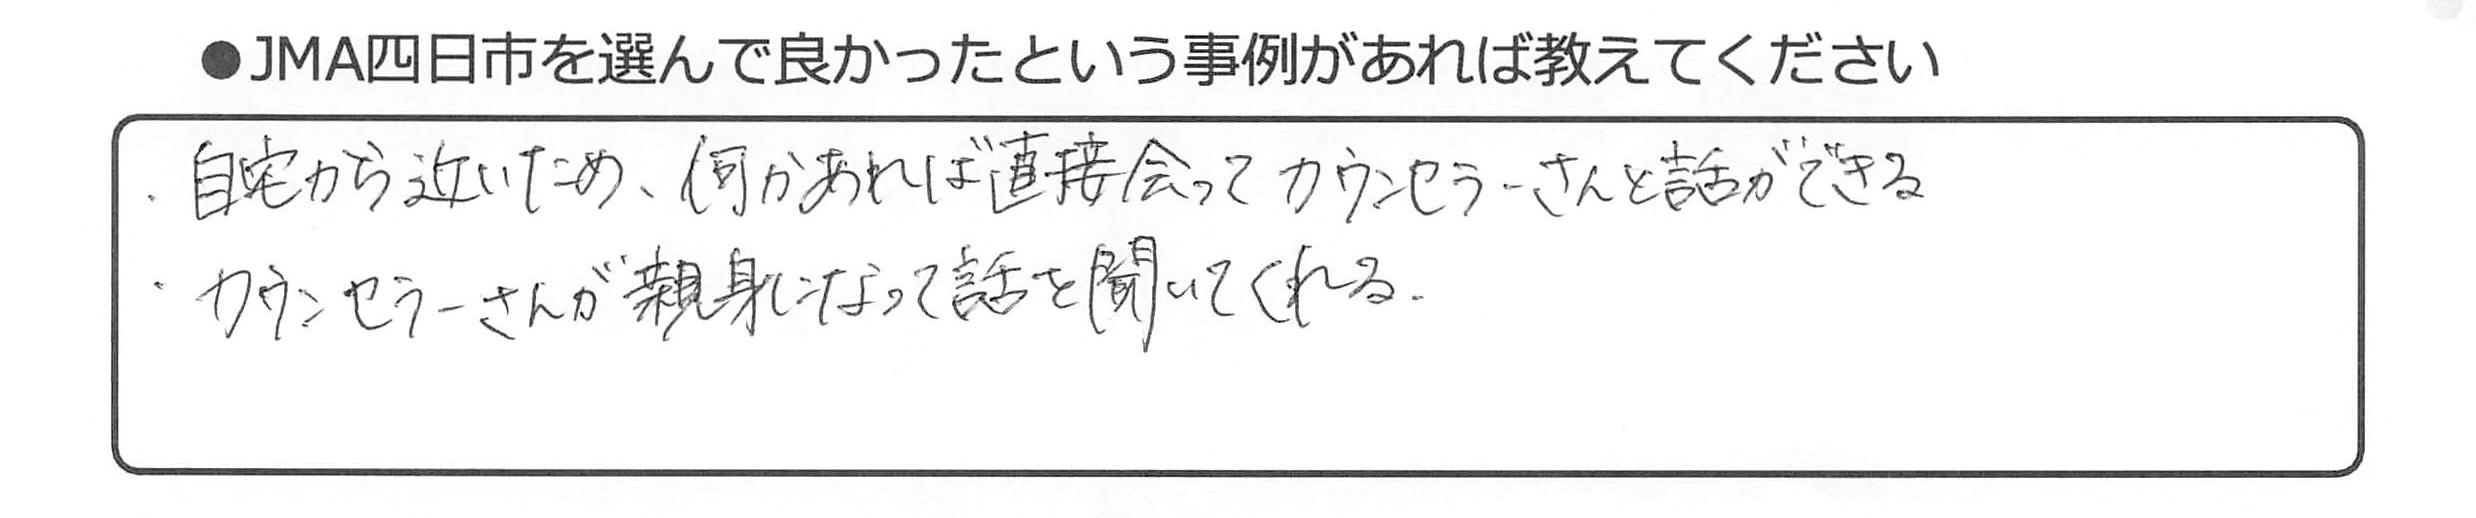 ●JMA四日市を選んで良かったという事例があれば教えてください
・自宅から近いため、何かあれば直接会ってカウンセラーさんと話ができる
・カウンセラーさんが親身になって話を聞いてくれる.